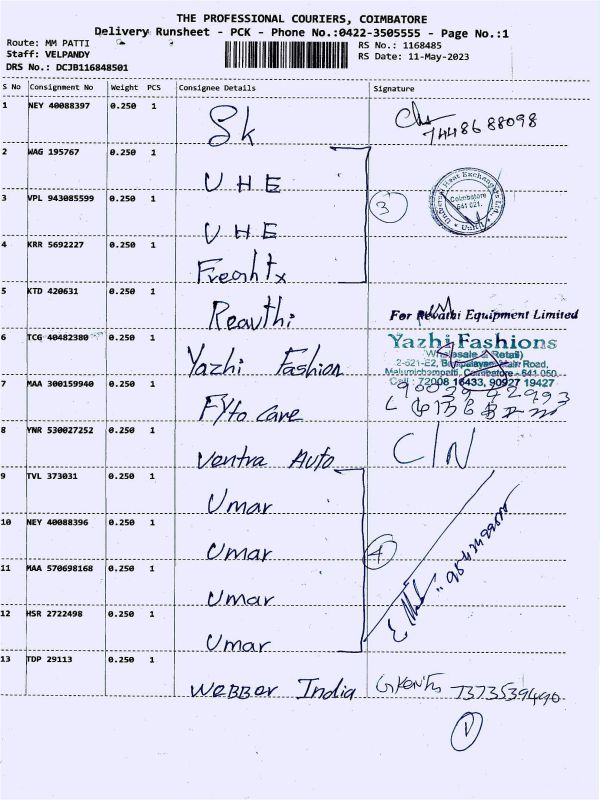 THE PROFESSIONAL COURIERS, COIMBATORE
Delivery Runsheet - PCK - Phone No.:0422-3505555 - Page No.:1
Route: MM PATTI
RS No.: 1168485
Staff: VELPANDY
RS Date: 11-May-2023
DRS No.: DCJB116848501
S No Consignment No Weight PCS Consignee Details Signature
1 NEY 40088397 0.250 1 Sk
74486 88098
2 WAG 195767 0.250 1 UHE
3 VPL 943085599 0.250 1 UHE
3
Universal Heat Exchangers Ltd.,
Coimbatore
641 021.
4 KRR 5692227 0.250 1 Freshtx
5 KTD 420631 0.250 1 Revthi
For Revathi Equipment Limited
6 TCG 40482380 0.250 1 Yazhi Fashion
Yazhi Fashions
(Wholesale & Retail)
Malumichampatti, Coimbatore - 641 050.
Cell : 72008 16433, 90927 19427
7 MAA 300159940 0.250 1 Fyto care
8 YNR 530027252 0.250 1 Ventra Auto
C/N
9 TVL 373031 0.250 1 Umar
10 NEY 40088396 0.250 1 Umar
4
11 MAA 570698168 0.250 1 Umar
12 HSR 2722498 0.250 1 Umar
13 TDP 29113 0.250 1 Webber India
7373539490
1